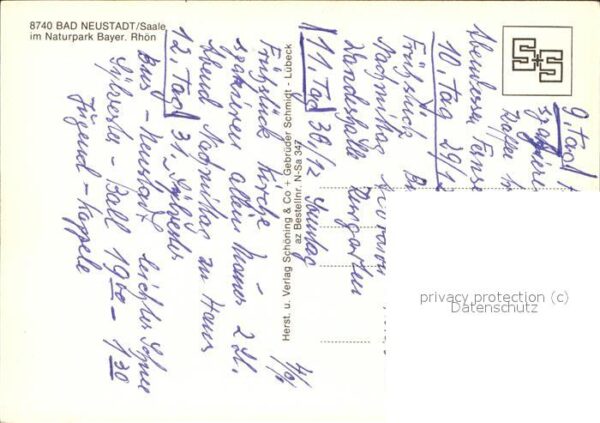 8740 BAD NEUSTADT/Saale
im Naturpark Bayer. Rhön
9. Tag
Kaffee
Abendessen Ferns
10. Tag 29/12
Frühstück
Nachmittag
Wandelhalle Kurgarten
11. Tag 30/12 Sonntag
Frühstück Kirche –
spazieren allein Männer 2 St.
Abend Nachmittag zu Haus
12. Tag 31. Silvester
Bus – Neustadt leichter Schnee
Silvester – Ball 19 – 1 30
Jugend – Kappele
4/
Herst. u. Verlag Schöning & Co + Gebrüder Schmidt - Lübeck
az Bestellnr. N-Sa 347
privacy protection (c)
Datenschutz